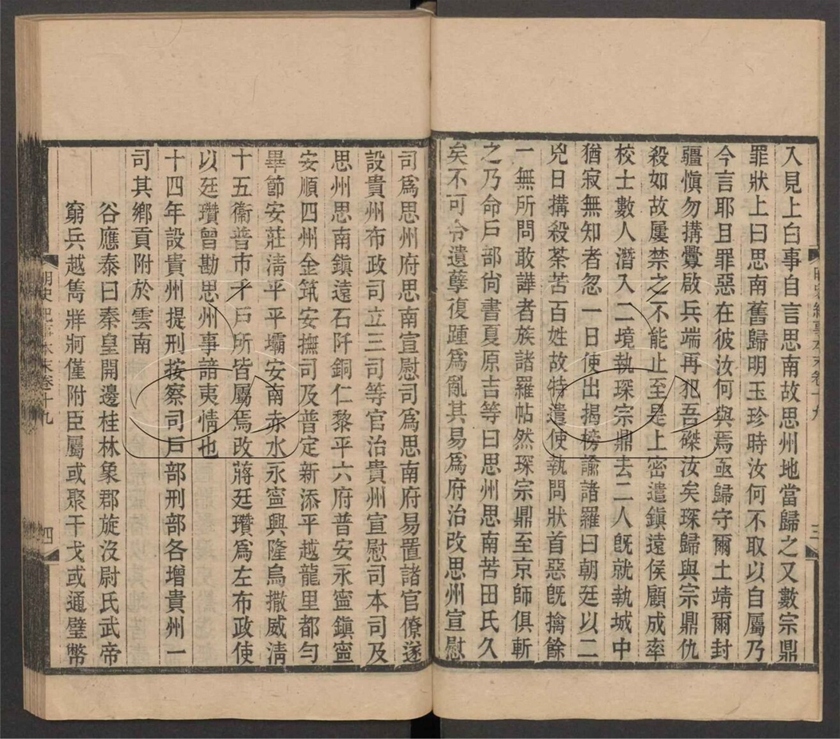 入見上白事自言思南故思州地當歸之又數宗鼎
罪狀上曰思南舊歸明玉珍時汝何不取以自屬乃
今言耶且罪惡在彼汝何與焉亟歸守爾土靖爾封
疆愼勿搆釁啟兵端再犯吾磔汝矣琛歸與宗鼎仇
殺如故屢禁之不能止至是上密遣鎭遠侯顧成率
校士數人潛入二境執琛宗鼎去二人旣就執城中
猶寂無知者忽一日使出揭榜諭諸羅曰朝廷以二
兇日搆殺荼苦百姓故特遣使執問狀首惡旣擒餘
一無所問敢譁者族諸羅帖然琛宗鼎至京師俱斬
之乃命戸部尙書夏原吉等曰思州思南苦田氏久
矣不可令遺孽復踵爲亂其易爲府治改思州宣慰
明史紀事本末卷十九
三
司爲思州府思南宣慰司爲思南府易置諸官僚遂
設貴州布政司立三司等官治貴州宣慰司本司及
思州思南鎭遠石阡銅仁黎平六府普安永寧鎭寧
安順四州金筑安撫司及普定新添平越龍里都勻
畢節安莊淸平平壩安南赤水永寧興隆烏撒威淸
十五衞普市千戸所皆屬焉改蔣廷瓚爲左布政使
以廷瓚曾勘思州事諳夷情也
十四年設貴州提刑按察司戸部刑部各增貴州一
司其鄉貢附於雲南
谷應泰曰秦皇開邊桂林象郡旋沒尉氏武帝
窮兵越雋牂牁僅附臣屬或聚干戈或通璧幣
明史紀事本末卷十九
四